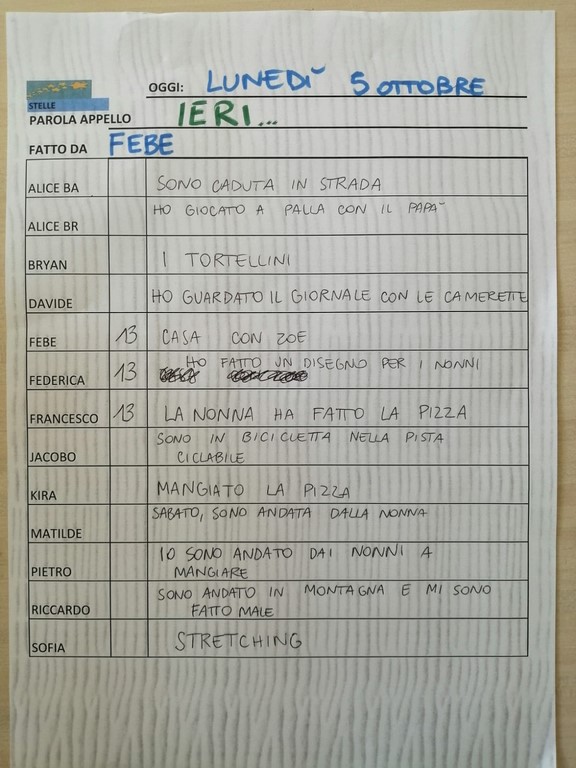 OGGI: LUNEDÌ 5 OTTOBRE
STELLE
PAROLA APPELLO IERI...
FATTO DA FEBE
ALICE BA SONO CADUTA IN STRADA
ALICE BR HO GIOCATO A PALLA CON IL PAPÀ
BRYAN I TORTELLINI
DAVIDE HO GUARDATO IL GIORNALE CON LE CAMERETTE
FEBE 13 CASA CON ZOE
FEDERICA 13 HO FATTO UN DISEGNO PER I NONNI
FRANCESCO 13 LA NONNA HA FATTO LA PIZZA
JACOBO SONO IN BICICLETTA NELLA PISTA
CICLABILE
KIRA MANGIATO LA PIZZA
MATILDE SABATO, SONO ANDATA DALLA NONNA
PIETRO IO SONO ANDATO DAI NONNI A
MANGIARE
RICCARDO SONO ANDATO IN MONTAGNA E MI SONO
FATTO MALE
SOFIA STRETCHING